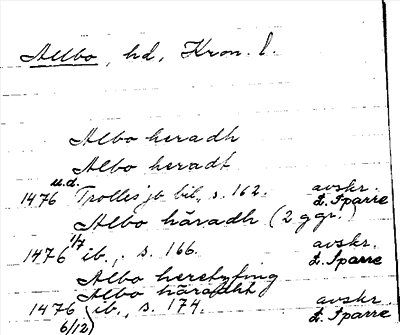 Allbo, hd, Kron. l.
Albo heradh
Albo heradt
u.d.
1476 Trolles jb bil, s. 162. avskr.
L. Sparre
Albo häradh (2 ggr.)
1/7 avskr.
1476 ib., s. 166. L. Sparre
Albo heretzting
Albo häradht
1476 ib., s. 174. avskr.
6/12) L. Sparre